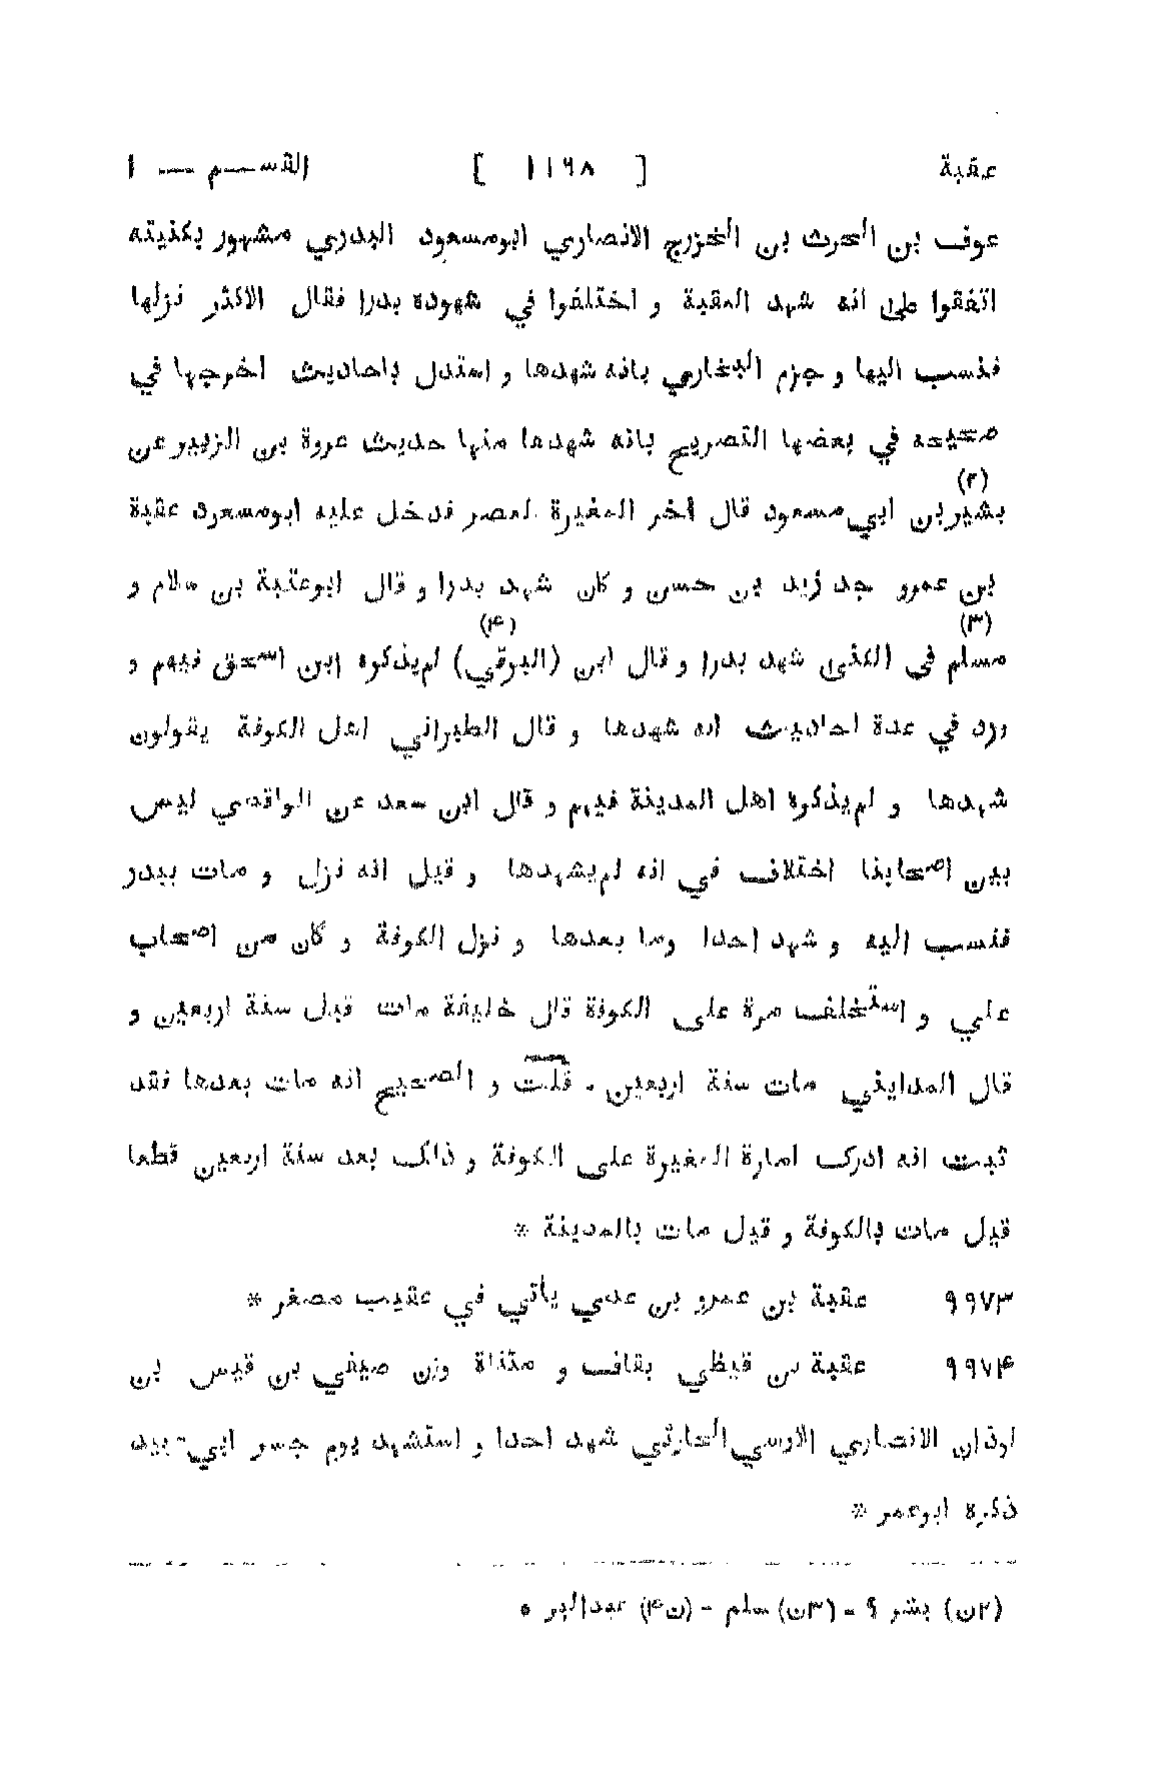 عقبة [ ١١٦٨ ] القسم — ١
عوف بن الحرث بن الخزرج الانصاري ابومسعود البدري مشهور بكنيته
اتفقوا على انه شهد العقبة و اختلفوا في شهوده بدرا فقال الاكثر نزلها
فنسب اليها و جزم البخاري بانه شهدها و استدل باحاديث اخرجها في
صحيحه في بعضها التصريح بانه شهدها منها حديث عروة بن الزبير عن
بشير (٢) بن ابي مسعود قال اخر المغيرة العصر فدخل عليه ابومسعود عقبة
بن عمرو جد زيد بن حسن و كان شهد بدرا و قال ابوعتبة بن سلام و
مسلم (٣) في الكنى شهد بدرا و قال ابن (البرقي) (۴) لم يذكره ابن اسحق فيهم و
ورد في عدة احاديث انه شهدها و قال الطبراني اهل الكوفة يقولون
شهدها و لم يذكره اهل المدينة فيهم و قال ابن سعد عن الواقدي ليس
بين اصحابنا اختلاف في انه لم يشهدها و قيل انه نزل و مات ببدر
فنسب اليه و شهد احدا وما بعدها و نزل الكوفة و كان من اصحاب
علي و استخلف مرة على الكوفة قال خليفة مات قبل سنة اربعين و
قال المدايني مات سنة اربعين - قلت و الصحيح انه مات بعدها فقد
ثبت انه ادرك امارة المغيرة على الكوفة و ذالك بعد سنة اربعين قطعا
قيل مات بالكوفة و قيل مات بالمدينة *
٩٩٧٣ عقبة بن عمرو بن عدي يأتي في عقيب مصغر *
٩٩٧۴ عقبة بن قيظي بقاف و مثناة وزن صيفي بن قيس بن
لوذان الانصاري الاوسي الحارثي شهد احدا و استشهد يوم جسر ابي عبيد
ذكره ابوعمر *
(٢ن) بشر ؟ - (٣ن) سلم - (۴ن) عبدالبر *